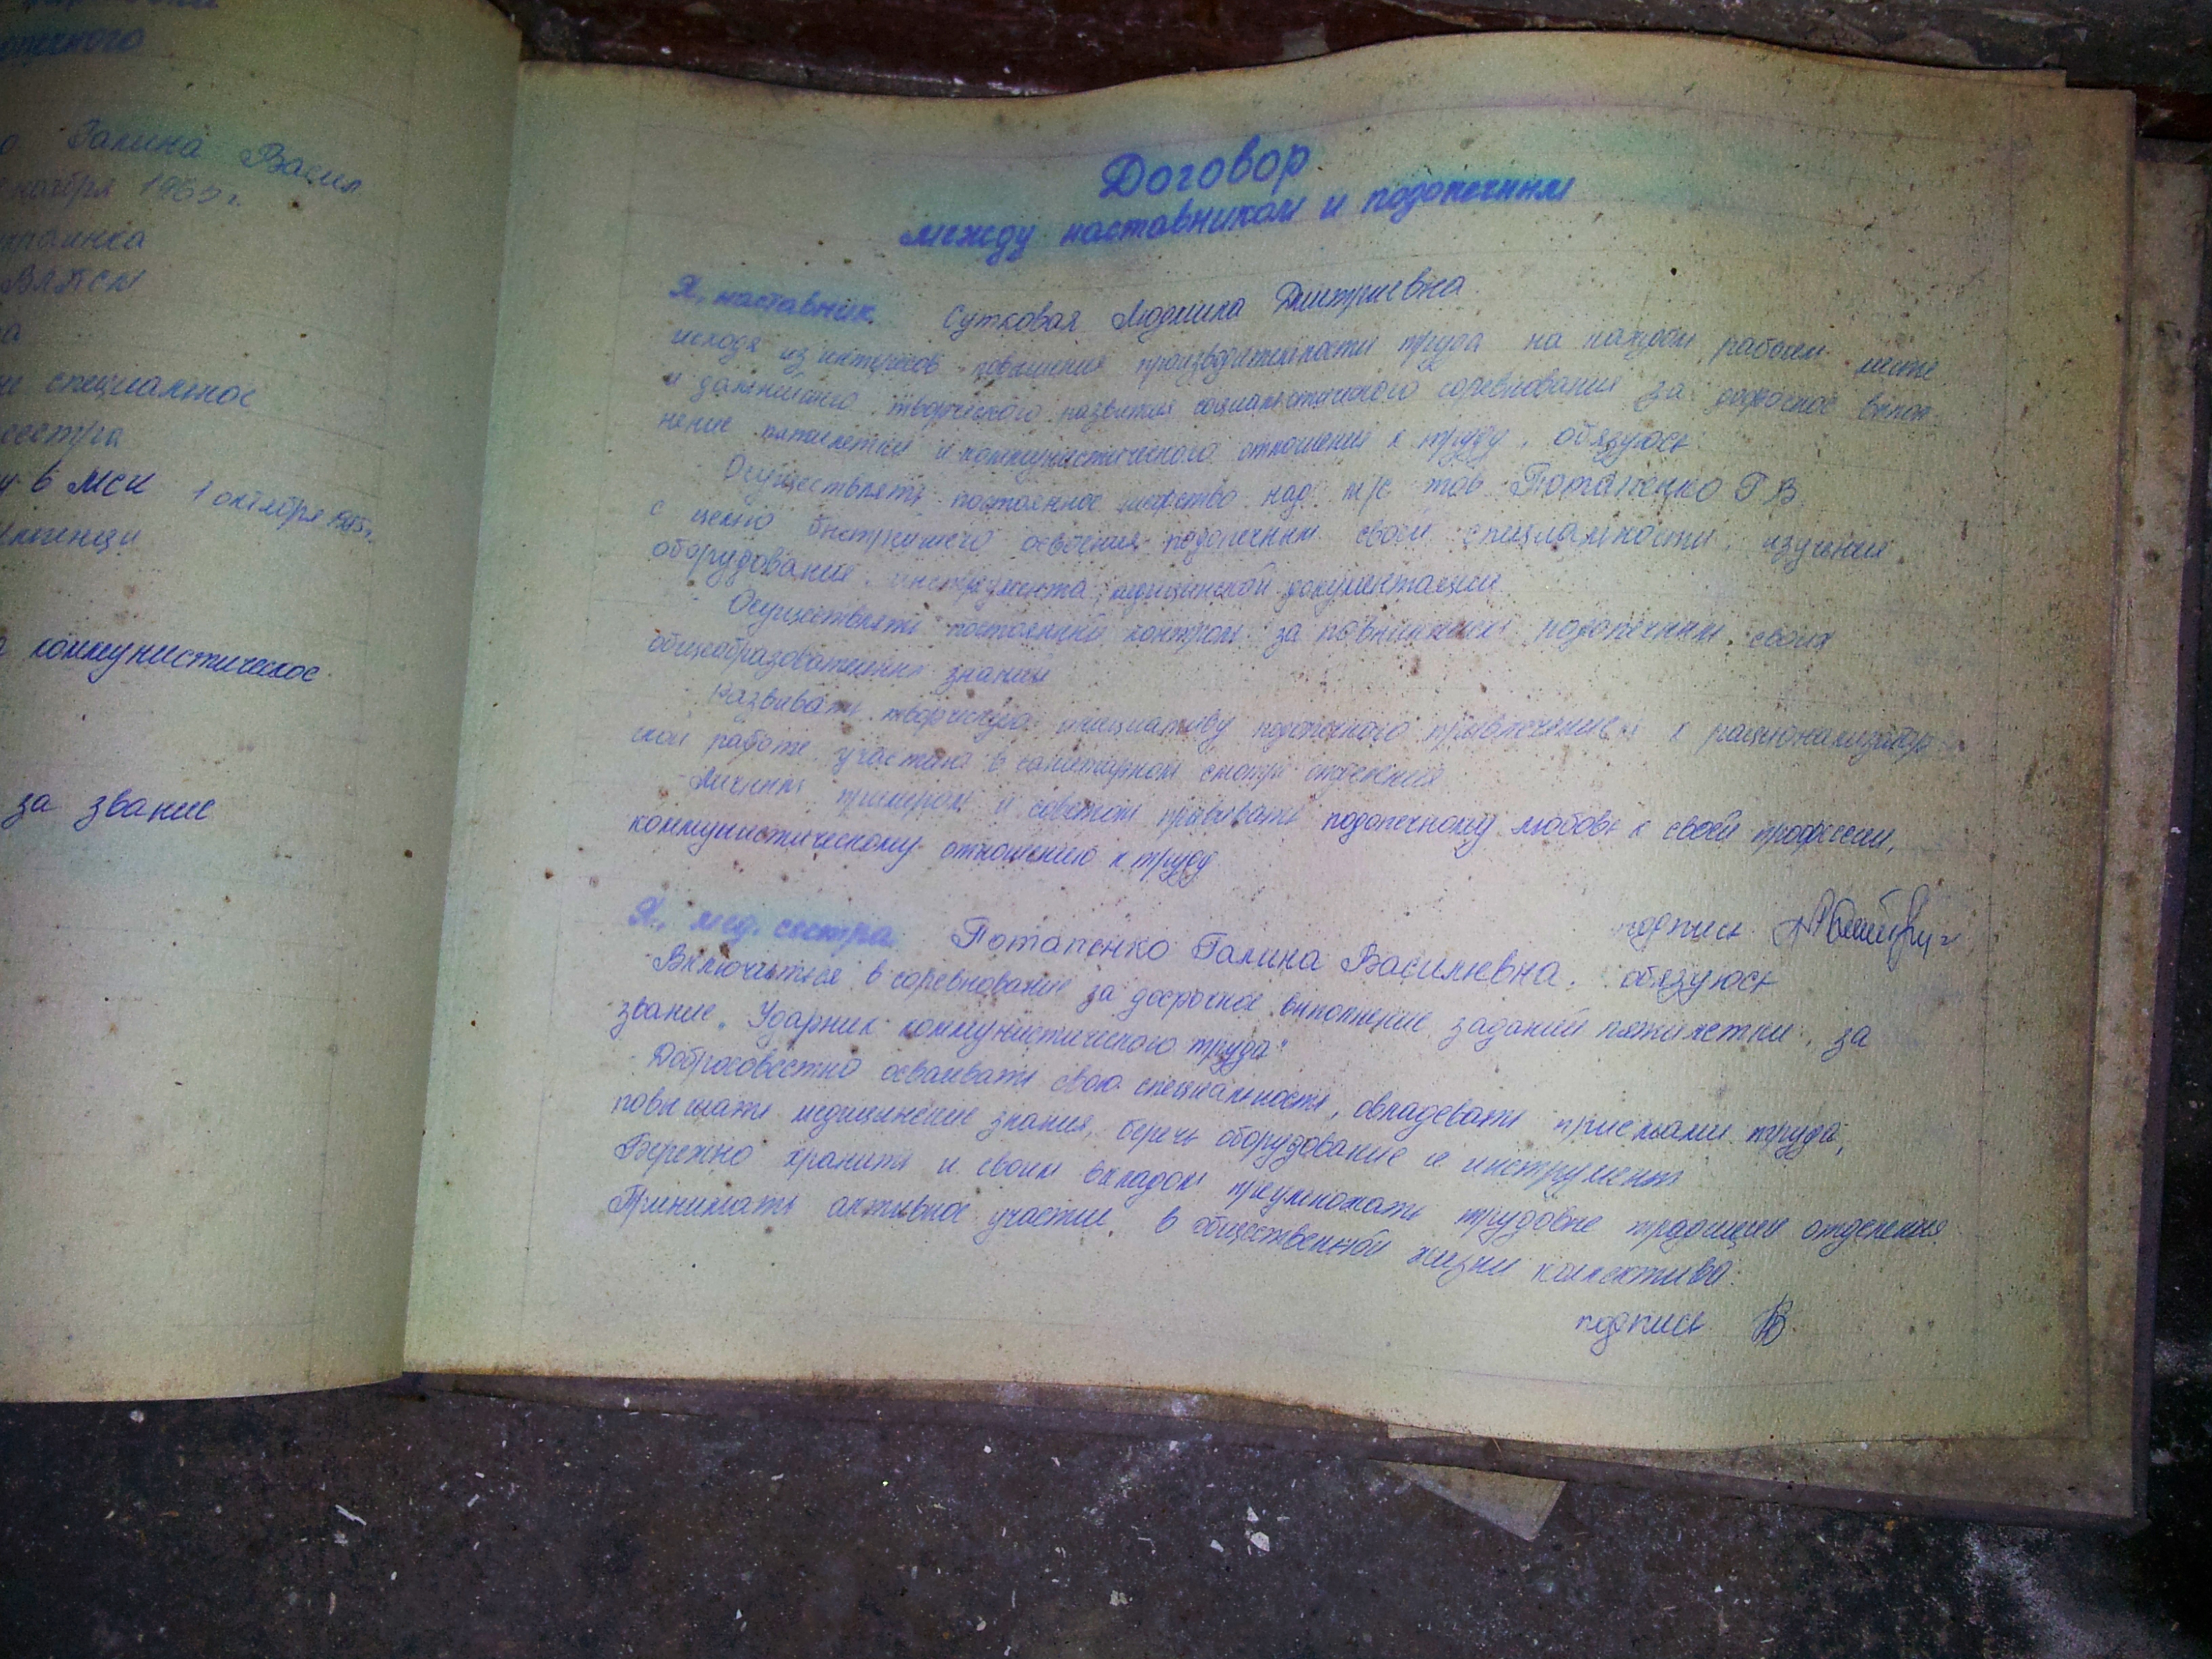 опечного
Галина Васил
1965 г.
украинка
ВЛКСМ
специальное
сестра
в МСЧ 1 октября 1985 г.
коммунистическое
за звание
Договор
между наставником и подопечным
Я, наставник Сутковая Людмила Дмитриевна
исходя из интересов повышения производительности труда на каждом рабочем месте
и дальнейшего творческого развития социалистического соревнования за досрочное выпол-
нение пятилетки и коммунистического отношения к труду, обязуюсь:
- Осуществлять постоянное шефство над м/с тов Потапенко Г В
с целью быстрейшего освоения подопечным своей специальности, изучения
оборудование, инструмента, медицинской документации
- Осуществлять постоянный контроль за повышением подопечным своих
общеобразовательных знаний
- Развивать творческую инициативу подопечного привлечение к рационализатор-
ской работе, участию в санитарном смотре отделения
- Личным примером и советом прививать подопечному любовь к своей профессии,
коммунистическому отношению к труду
подпись
Я, мед. сестра Потапенко Галина Васильевна. обязуюсь
- Включиться в соревнование за досрочное выполнение заданий пятилетки, за
звание „Ударник коммунистического труда"
- Добросовестно осваивать свою специальность, овладевать приемами труда,
повышать медицинские знания, беречь оборудование и инструмент
Бережно хранить и своим вкладом приумножать трудовые традиции отделения
Принимать активное участие, в общественной жизни коллектива.
подпись